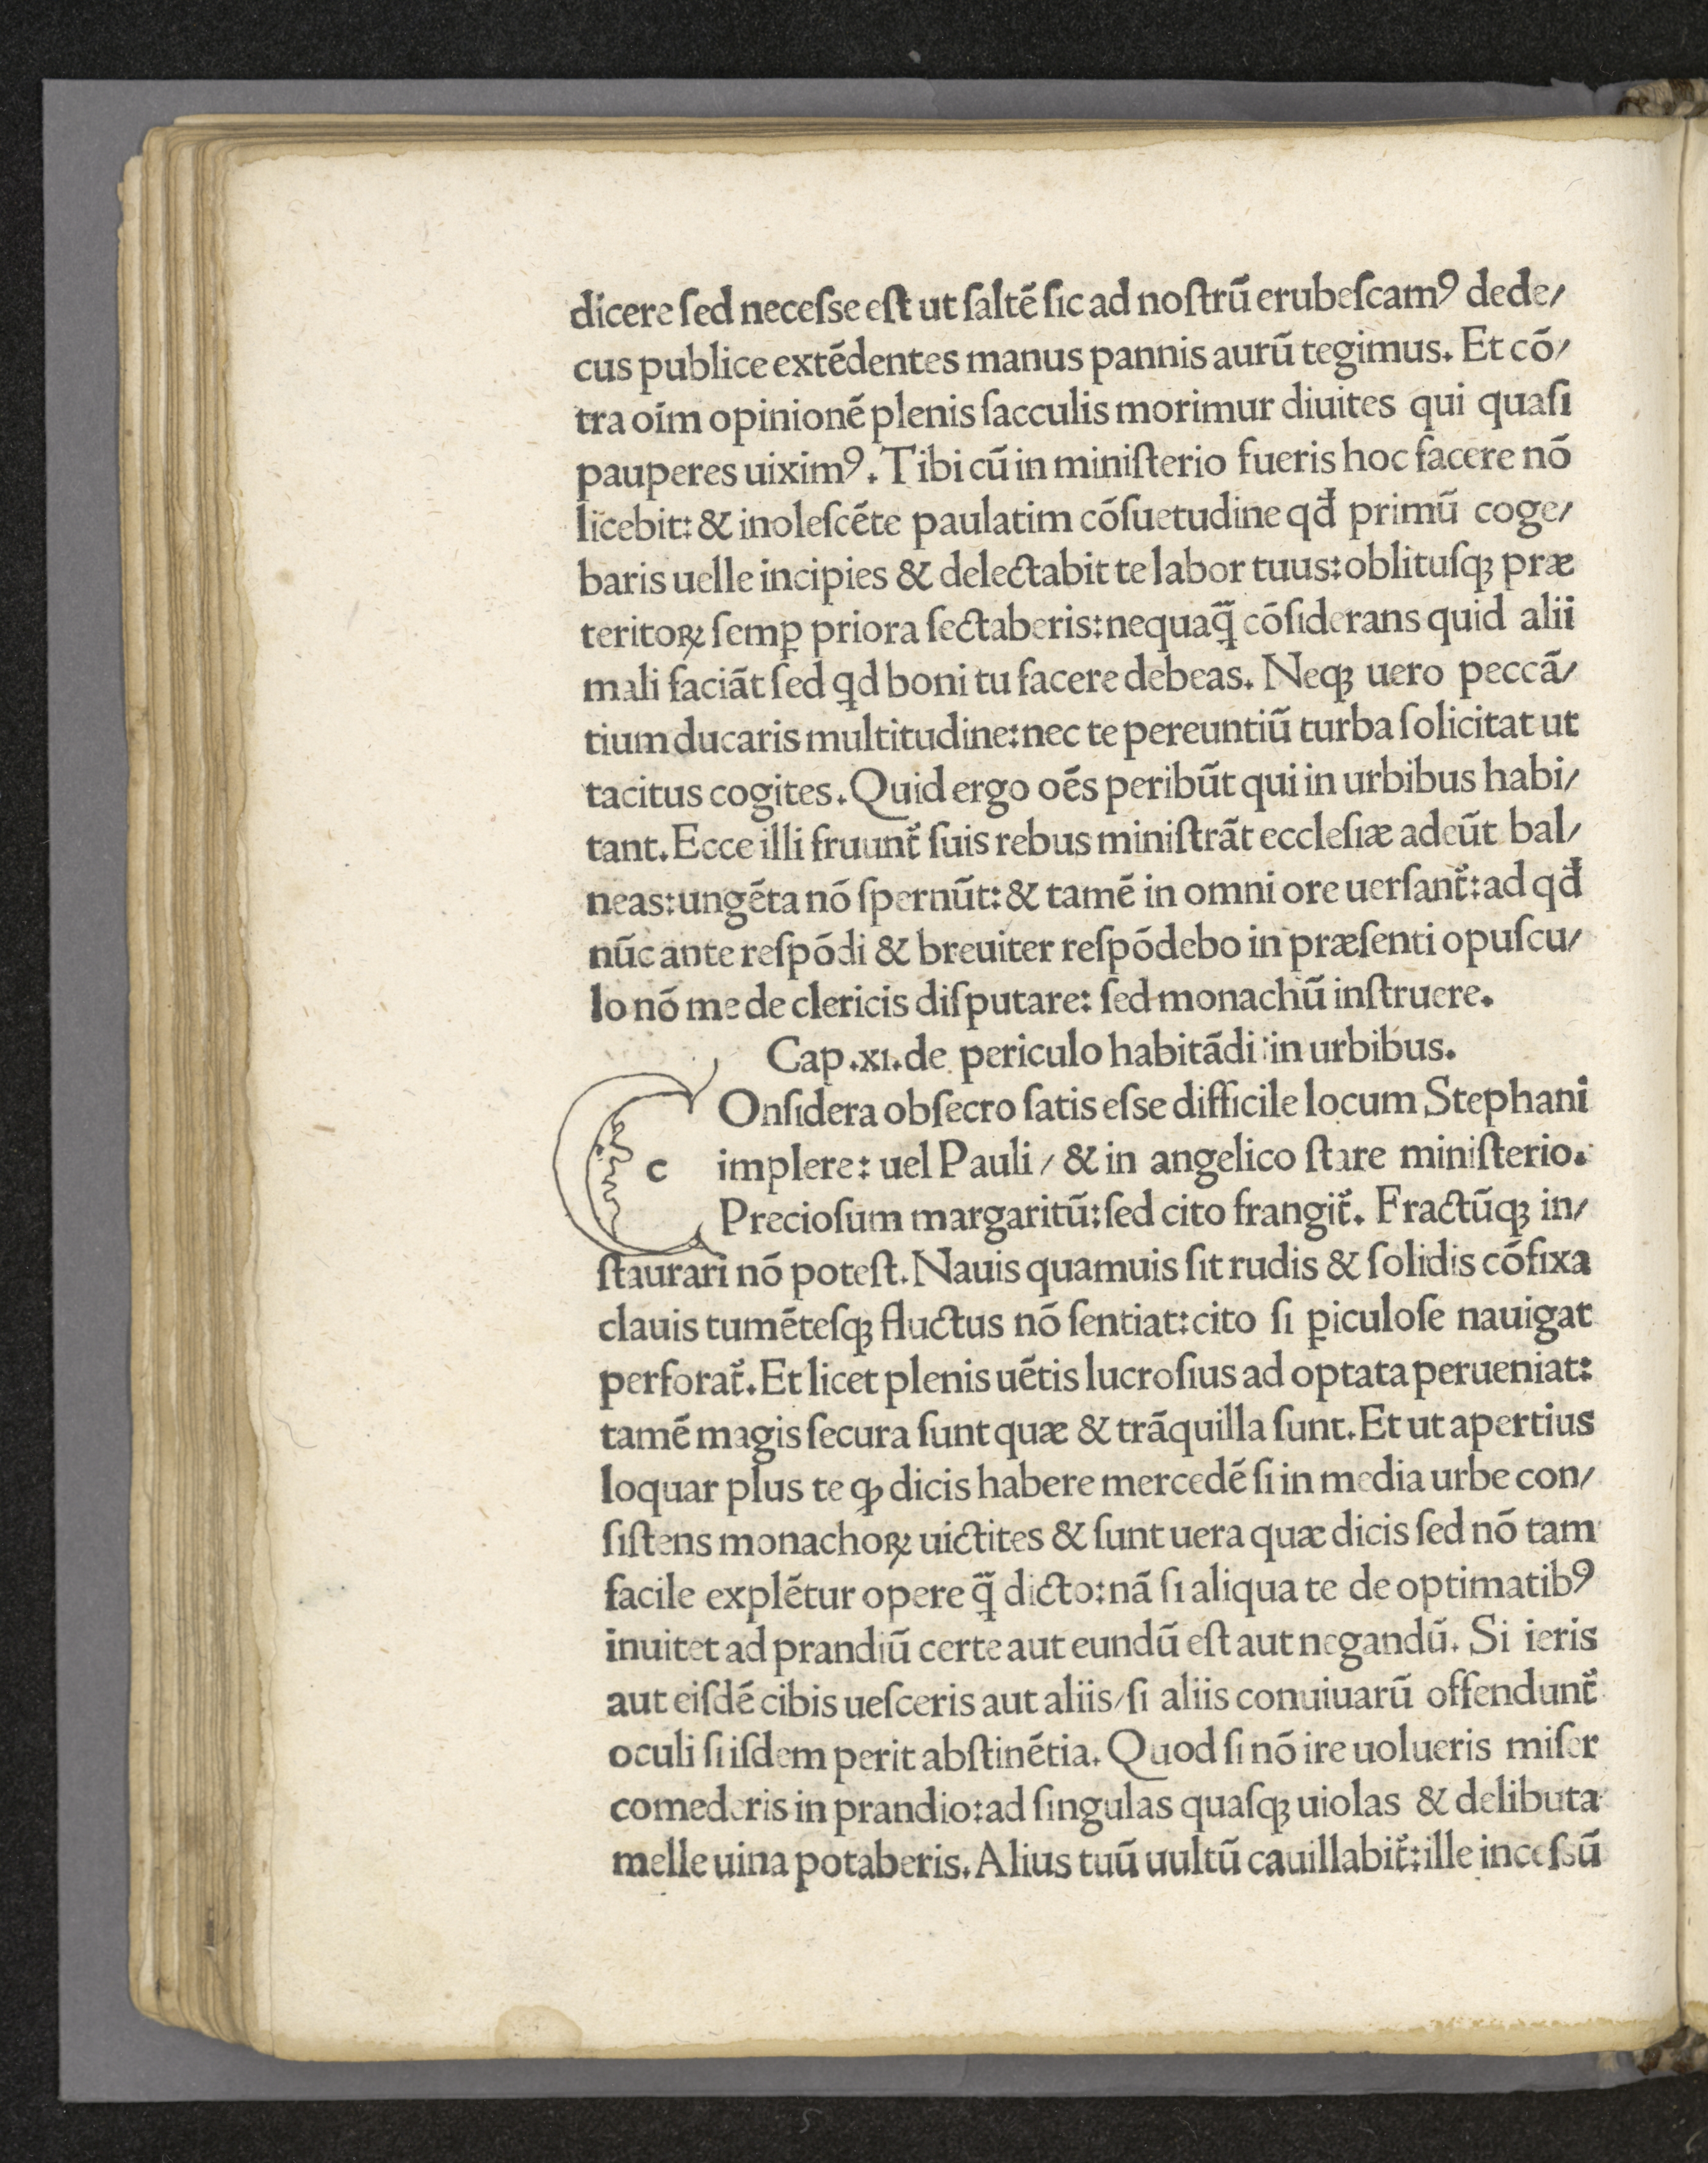 dicere ſed neceſse eſt ut ſaltē ſic ad noſtrū erubeſcamꝰ dede/
cus publice extēdentes manus pannis aurū tegimus. Et cō/
tra oīm opinionē plenis ſacculis morimur diuites qui quaſi
pauperes uiximꝰ. Tibi cū in miniſterio fueris hoc facere nō
licebit: & inoleſcēte paulatim cōſuetudine qđ primū coge/
baris uelle incipies & delectabit te labor tuus: oblituſqꝫ præ
teritoꝝ ſemꝑ priora ſectaberis: nequaq̃ cōſiderans quid alii
mali faciāt ſed ꝗd boni tu facere debeas. Neqꝫ uero peccā/
tium ducaris multitudine: nec te pereuntiū turba ſolicitat ut
tacitus cogites. Quid ergo oēs peribūt qui in urbibus habi/
tant. Ecce illi fruunt̃ ſuis rebus miniſtrāt eccleſiæ adeūt bal/
neas: ungēta nō ſpernūt: & tamē in omni ore uerſant̃: ad qđ
nūc ante reſpōdi & breuiter reſpōdebo in præſenti opuſcu/
lo nō me de clericis diſputare: ſed monachū inſtruere.
Cap .xi. de periculo habitādi in urbibus.
c Onſidera obſecro ſatis eſse difficile locum Stephani
implere: uel Pauli / & in angelico ſtare miniſterio.
Precioſum margaritū: ſed cito frangit̃. Fractūqꝫ in/
ſtaurari nō poteſt. Nauis quamuis ſit rudis & ſolidis cōfixa
clauis tumēteſqꝫ fluctus nō ſentiat: cito ſi ꝑiculoſe nauigat
perforat̃. Et licet plenis uētis lucroſius ad optata perueniat:
tamē magis ſecura ſunt quæ & trāquilla ſunt. Et ut apertius
loquar plus te ꝙ dicis habere mercedē ſi in media urbe con/
ſiſtens monachoꝝ uictites & ſunt uera quæ dicis ſed nō tam
facile explētur opere q̃ dicto: nā ſi aliqua te de optimatibꝰ
inuitet ad prandiū certe aut eundū eſt aut negandū. Si ieris
aut eiſdē cibis ueſceris aut aliis / ſi aliis conuiuarū offendunt̃
oculi ſi iſdem perit abſtinētia. Quod ſi nō ire uolueris miſer
comederis in prandio: ad ſingulas quaſqꝫ uiolas & delibuta
melle uina potaberis. Alius tuū uultū cauillabit̃: ille inceſsū